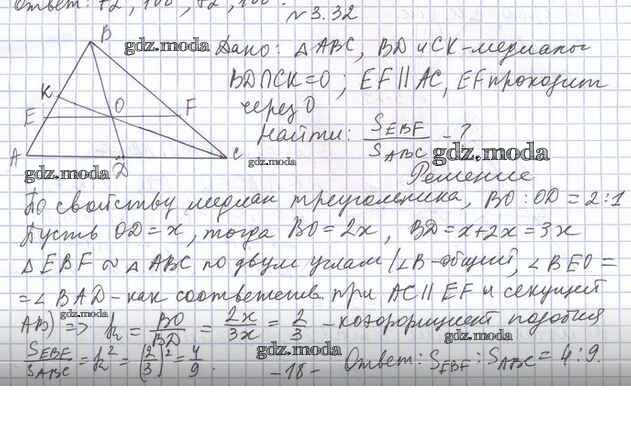 Ответ: 72, 108, 72, 108.
№3.32
B
gdz.moda
Дано: △ABC, BD и CK - медианы
K
BD∩CK=O; EF ∥ AC, EF проходит
E
O
F
через O
Найти: S_EBF / S_ABC - ?
A
D
C
gdz.moda
gdz.moda
gdz.moda
Решение
По свойству медиан треугольника, BO:OD=2:1
Пусть OD=x, тогда BO=2x, BD=x+2x=3x
△EBF ~ △ABC по двум углам (∠B-общий, ∠BEO=
=∠BAD - как соответств. при AC∥EF и секущей
AB) => k = BO/BD = 2x/3x = 2/3 - коэффициент подобия
gdz.moda
gdz.moda
S_EBF/S_ABC = k² = (2/3)² = 4/9.
-18-
Ответ: S_EBF : S_ABC = 4:9.
gdz.moda
gdz.moda